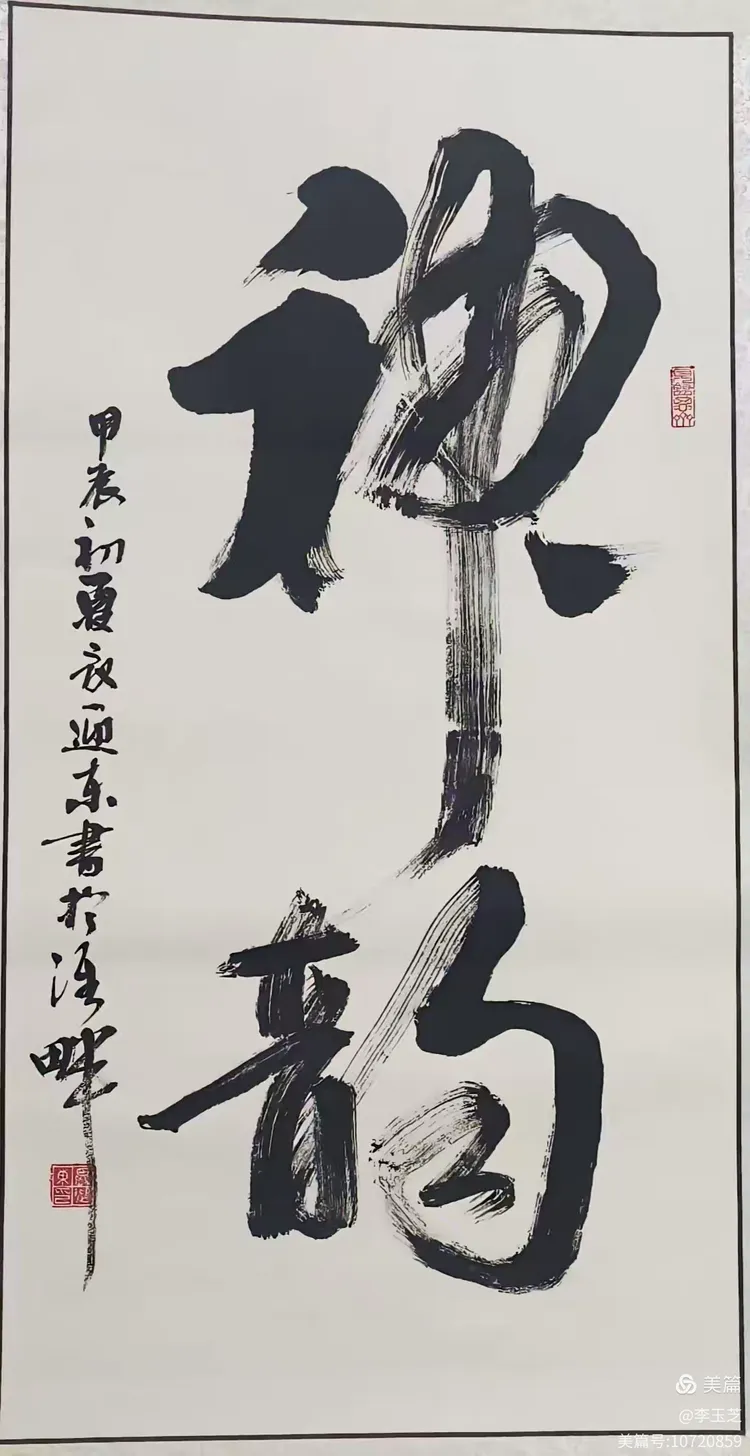 神韵
甲辰初夏夜迎东書於淮畔
美篇
@李玉芝
美篇号:10720859